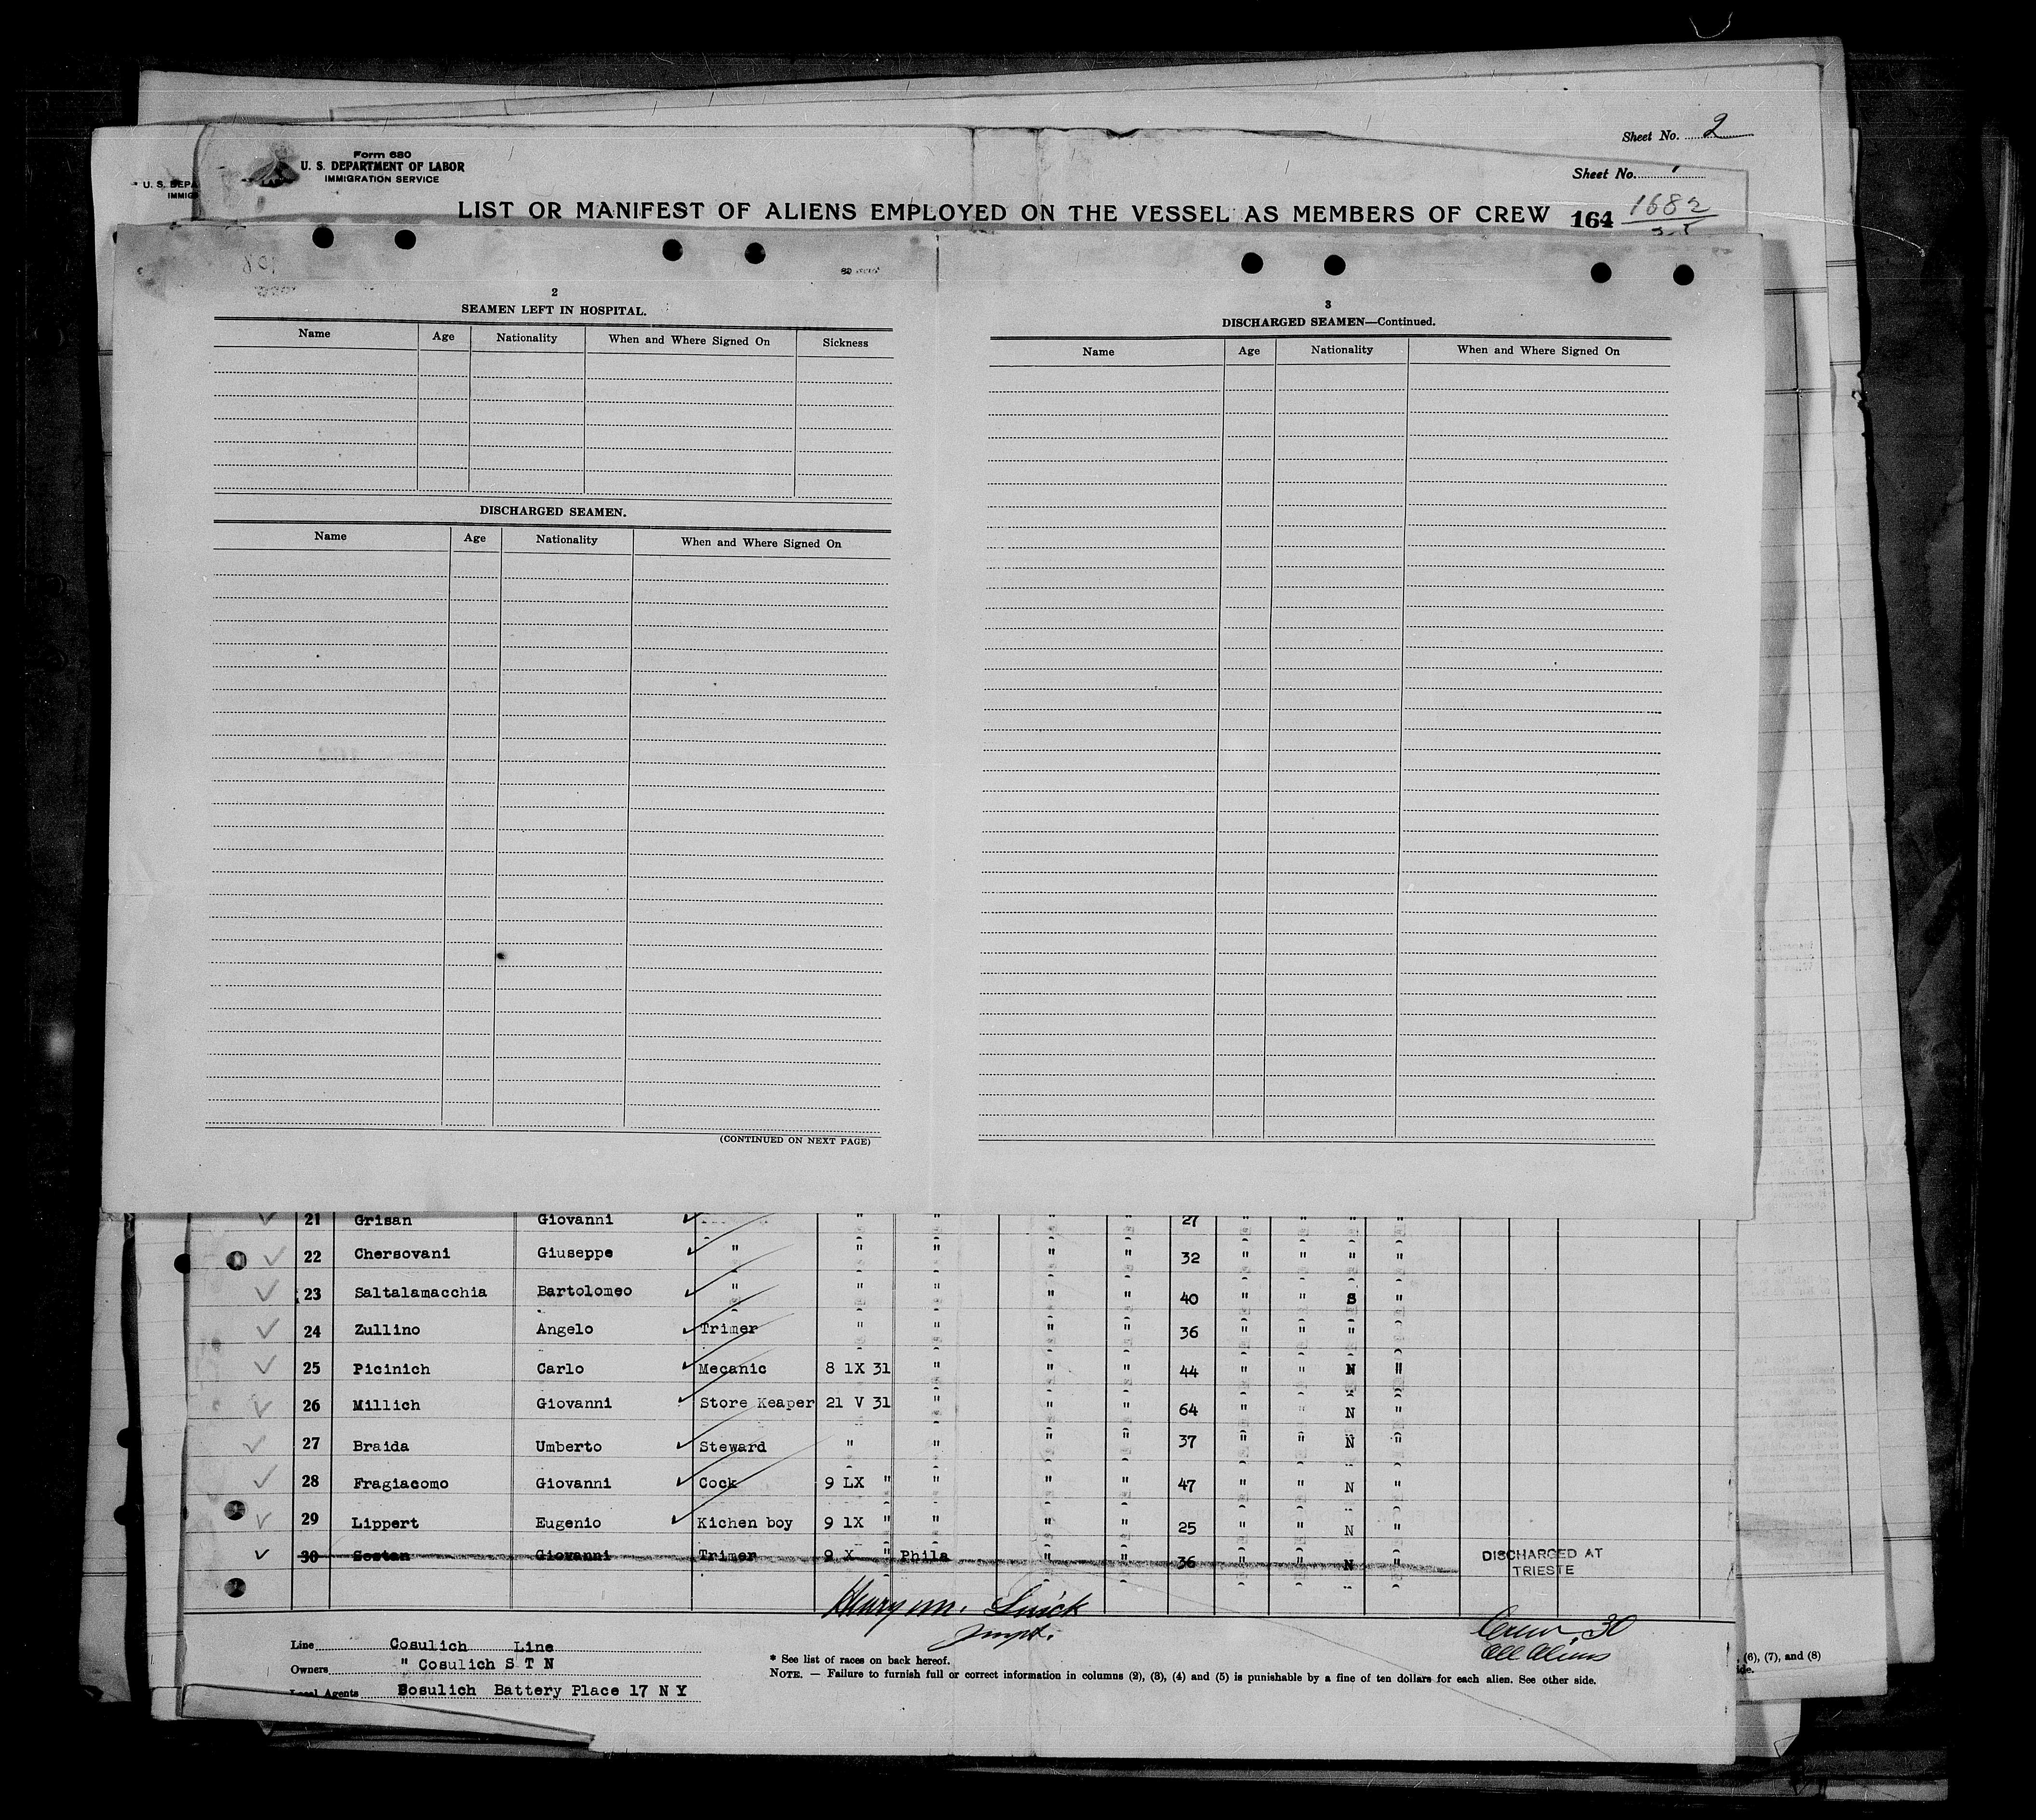 Sheet No. 2
Form 680
U. S. DEPARTMENT OF LABOR
IMMIGRATION SERVICE
U. S. DEPA
IMMIG
Sheet No. 1
LIST OR MANIFEST OF ALIENS EMPLOYED ON THE VESSEL AS MEMBERS OF CREW 164 1682
2
SEAMEN LEFT IN HOSPITAL.
Name Age Nationality When and Where Signed On Sickness
DISCHARGED SEAMEN.
Name Age Nationality When and Where Signed On
(CONTINUED ON NEXT PAGE)
3
DISCHARGED SEAMEN—Continued.
Name Age Nationality When and Where Signed On
21 Grisan Giovanni " " " " 27 " " " "
22 Chersovani Giuseppe " " " " " 32 " " " "
23 Saltalamacchia Bartolomeo " " " " " 40 " " S "
24 Zullino Angelo Trimer " " " " 36 " " " "
25 Picinich Carlo Mecanic 8 1X 31 " " " 44 " " N "
26 Millich Giovanni Store Keaper 21 V 31 " " " 64 " " N "
27 Braida Umberto Steward " " " " 37 " " N "
28 Fragiacomo Giovanni Cock 9 LX " " " " 47 " " N "
29 Lippert Eugenio Kichen boy 9 1X " " " " 25 " " N "
30 Sestan Giovanni Trimer 9 X " Phila " " 36 " " N " DISCHARGED AT
TRIESTE
Henry M.
Inspt.
Crew 30
All Aliens
Line Cosulich Line
Owners " Cosulich S T N
Local Agents Bosulich Battery Place 17 N Y
* See list of races on back hereof.
NOTE. — Failure to furnish full or correct information in columns (2), (3), (4) and (5) is punishable by a fine of ten dollars for each alien. See other side.
(6), (7), and (8)
ide.